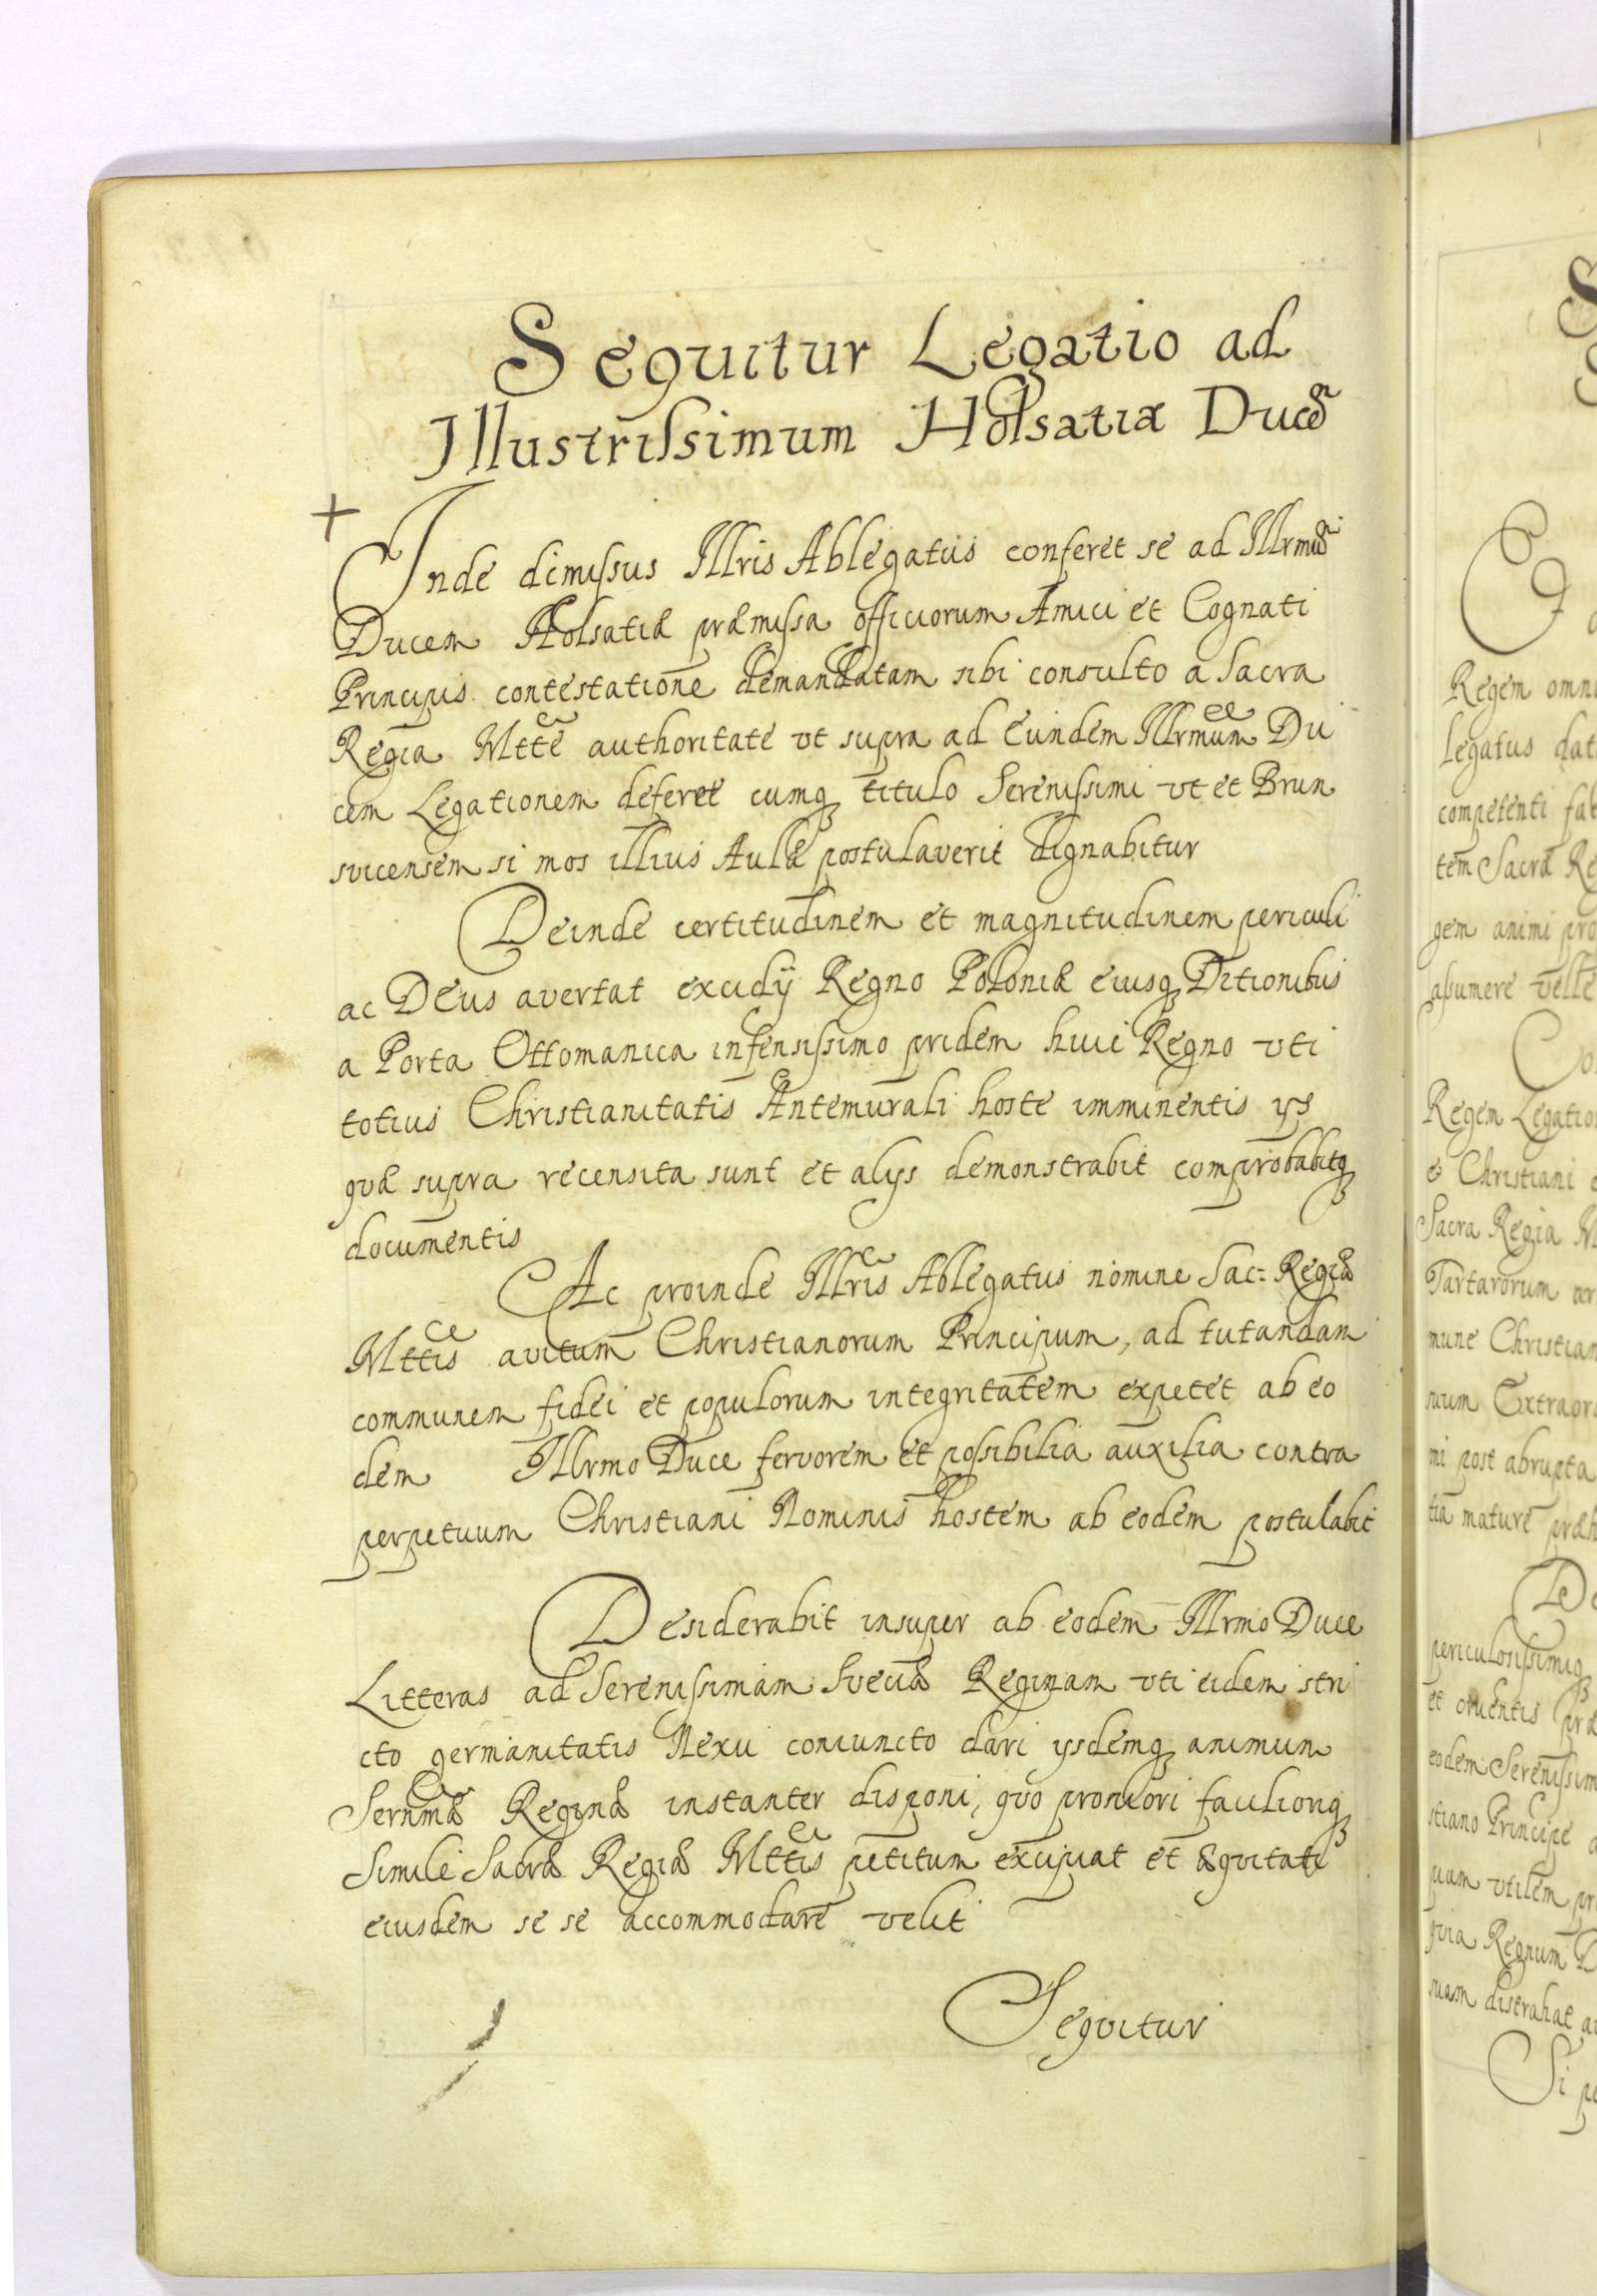 Sequitur Legatio ad
Illustrissimum Holsatiæ Ducē
Inde dimissus Illris Ablegatus conferet se ad Illrmū
Ducem Holsatiæ præmissa officiorum Amici et Cognati
Principis contestatione demandatam sibi consulto a Sacra
Regia Mtte authoritate vt supra ad Eundem Illrmum Du
cem Legationem deferet cumq titulo Serenissimi vt et Brun
svicensem si mos illius Aulæ postulaverit dignabitur
Deinde certitudinem et magnitudinem periculi
ac Deus avertat excidij Regno Poloniæ eiusq Ditionibus
a Porta Ottomanica infensissimo pridem huic Regno vti
totius Christianitatis Antemurali hoste imminentis ijs
quæ supra recensita sunt et alijs demonstrabit comprobabitq
documentis
Ac proinde Illris Ablegatus nomine Sac: Regiæ
Mttis avitum Christianorum Principum, ad tutandam
communem fidei et populorum integritatem expetet ab eo
dem Illrmo Duce fervorem et possibilia auxilia contra
perpetuum Christiani Nominis hostem ab eodem postulabit
Desiderabit insuper ab eodem Illrmo Duce
Litteras ad Serenissimam Sveciæ Reginam vti eidem stri
cto germanitatis Nexu coniuncto dari ijsdemq animum
Sernmæ Reginæ instanter disponi, quo proniori facilioriq
Simile Sacræ Regiæ Mttis petitum excipiat et æquitati
eiusdem se se accommodare velit
Sequitur
Regem omni
Legatus dat
competenti
tem Sacræ Re
gem animi pro
absumere velle
Regem Legatio
Christiani
Sacra Regia M
Tartarorum
mune Christian
suum Extraor
mi post abrupta
tia mature præ
De
periculosissimiq
et cruentis præ
eodem Serenissim
stiano Principe
quam vtilem pr
quia Regnum D
suam distrahat
Si